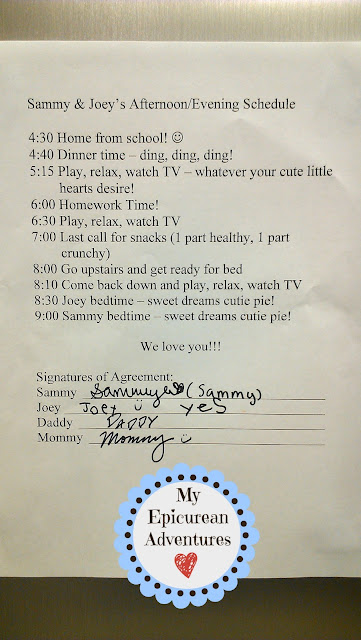 Sammy & Joey's Afternoon/Evening Schedule
4:30 Home from school! ☺
4:40 Dinner time – ding, ding, ding!
5:15 Play, relax, watch TV – whatever your cute little
hearts desire!
6:00 Homework Time!
6:30 Play, relax, watch TV
7:00 Last call for snacks (1 part healthy, 1 part
crunchy)
8:00 Go upstairs and get ready for bed
8:10 Come back down and play, relax, watch TV
8:30 Joey bedtime – sweet dreams cutie pie!
9:00 Sammy bedtime – sweet dreams cutie pie!
We love you!!!
Signatures of Agreement:
Sammy (Sammy)
Joey Joey yes
Daddy DADDY
Mommy Mommy
My
Epicurean
Adventures